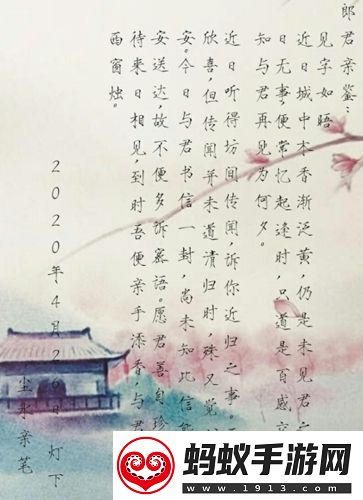 郎君亲鉴：
见字如晤
近日城中木香渐泛黄，仍是未见君之
日无事，便常忆起逢时，只道是百感交
知与君再见为何夕。
近日听得坊间传闻，诉你近归之事。
欣喜，但传闻并未道清归时，殊又觉
安。今日与君书信一封，尚未知此信能
安送达，故不便多诉语。愿君善自珍
待来日相见，到时吾便亲手添香，与君
西窗烛。
2020年4月26日灯下
尘亲笔
蚂蚁手游网
www.1913.com